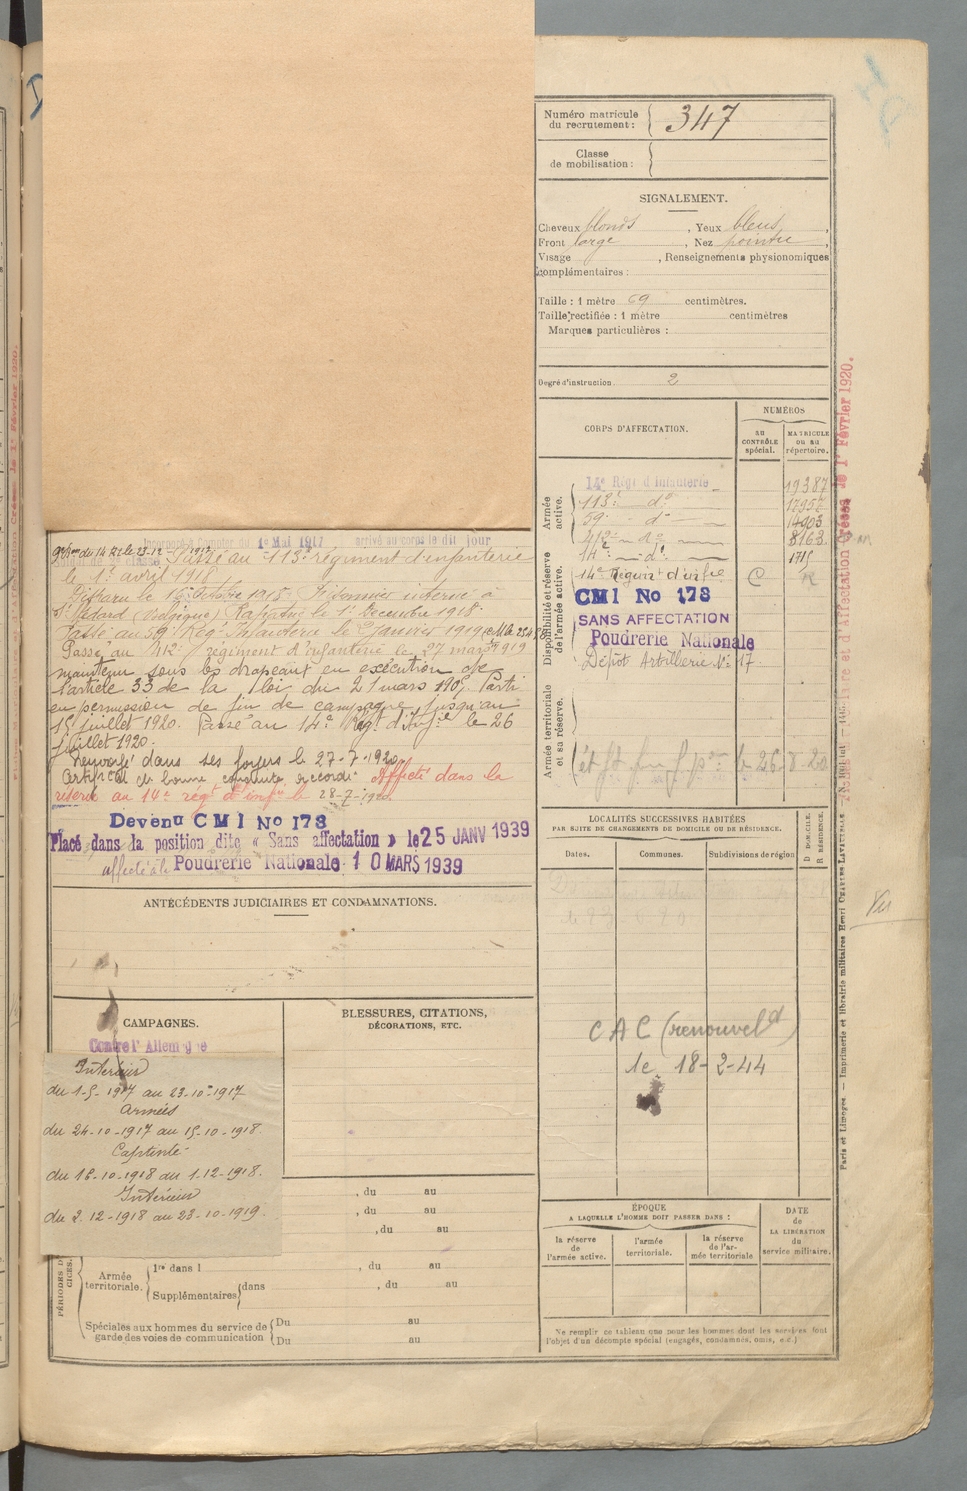 Numéro matricule
du recrutement : 347
Classe
de mobilisation :
SIGNALEMENT.
Cheveux blonds, Yeux bleus,
Front large, Nez pointu,
Visage , Renseignements physionomiques
complémentaires :
Taille : 1 mètre 69 centimètres.
Taille rectifiée : 1 mètre centimètres
Marques particulières :
Degré d'instruction. 2
CORPS D'AFFECTATION.
NUMÉROS
au
CONTRÔLE
spécial.
MATRICULE
ou au
répertoire.
Armée
active.
14e Régt d'Infanterie 19387
113e do 17957
59e do 14903
412e do 8163
14e do 1715
Disponibilité et réserve
de l'armée active.
14e Régim't d'inf'ie C
CMI No 173
SANS AFFECTATION
Poudrerie Nationale
Dépôt Artillerie No 17.
Armée territoriale
et sa réserve.
Incorporé à compter du 1er Mai 1917 arrivé au corps le dit jour
Passé au 113e régiment d'infanterie
le 1er avril 1918
Disparu le 16 Octobre 1918. Prisonnier interné à
St Médard (Belgique) Rapatrié le 1er Décembre 1918.
Passé au 59e Rég. Infanterie le 2 janvier 1919
Passé au 412e régiment d'infanterie le 27 mars 1919
maintenu sous les drapeaux en exécution de
l'article 33 de la loi du 21 mars 1905. Parti
en permission de fin de campagne jusqu'au
15 juillet 1920. Passé au 14e Régt d'Inf.ie le 26
juillet 1920.
Renvoyé dans ses foyers le 27-7-1920
Certificat de bonne conduite accordé Affecté dans la
réserve au 14e régt d'infie le 28-7-1920.
Devenu CMI No 173
Placé dans la position dite « Sans affectation » le 25 JANV 1939
affecté à la Poudrerie Nationale 10 MARS 1939
ANTÉCÉDENTS JUDICIAIRES ET CONDAMNATIONS.
LOCALITÉS SUCCESSIVES HABITÉES
PAR SUITE DE CHANGEMENTS DE DOMICILE OU DE RÉSIDENCE.
Dates. Communes. Subdivisions de région
D DOMICILE.
R RÉSIDENCE.
CAC (renouvelé)
le 18-2-44
CAMPAGNES.
Contre l'Allemagne
Intérieur
du 1-5-1917 au 23-10-1917
Armées
du 24-10-1917 au 15-10-1918.
Captivité
du 16-10-1918 au 1-12-1918.
Intérieur
du 2-12-1918 au 23-10-1919.
BLESSURES, CITATIONS,
DÉCORATIONS, ETC.
, du au
, du au
, du au
Armée
territoriale.
1re dans l , du au
Supplémentaires dans , du au
Spéciales aux hommes du service de
garde des voies de communication
Du au
Du au
ÉPOQUE
A LAQUELLE L'HOMME DOIT PASSER DANS :
la réserve
de
l'armée active.
l'armée
territoriale.
la réserve
de l'ar-
mée territoriale
DATE
de
LA LIBÉRATION
du
service militaire.
Ne remplir ce tableau que pour les hommes dont les services font
l'objet d'un décompte spécial (engagés, condamnés, omis, etc.)
Paris et Limoges. — Imprimerie et librairie militaires Henri CHARLES-LAVAUZELLE